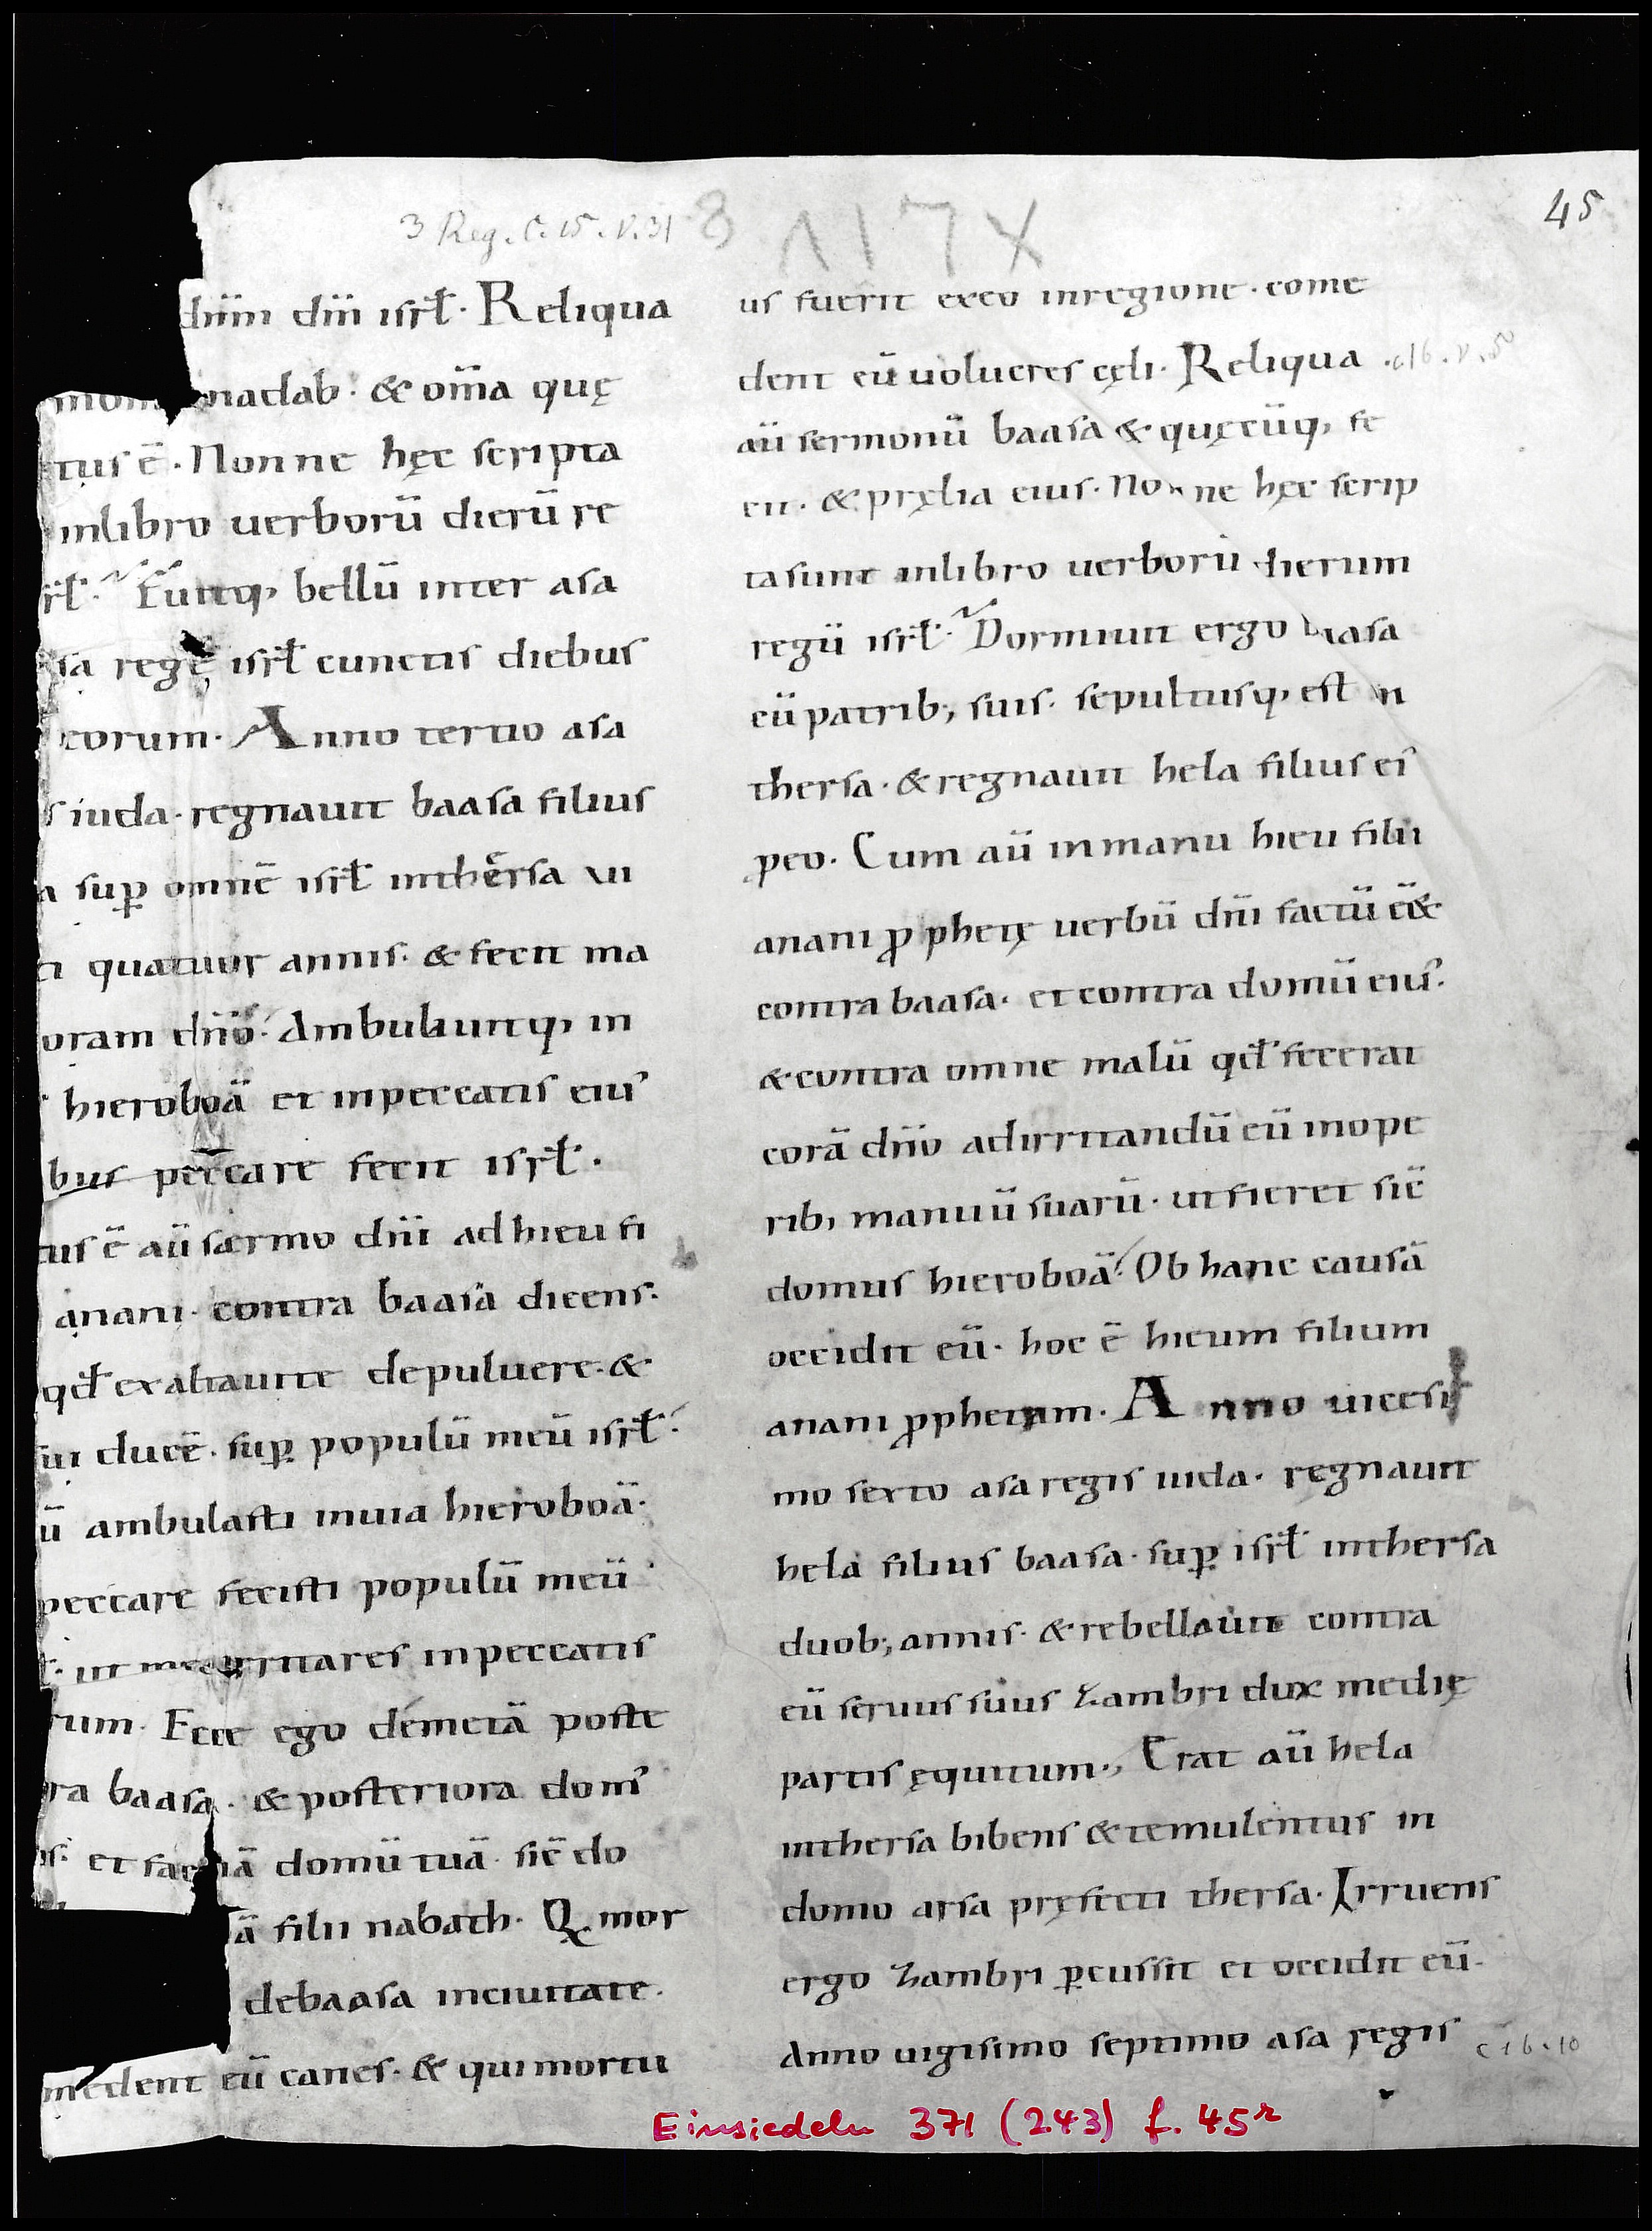 45
3 Reg. C. 15. V. 31
dn̄m dn̄i isrł. Reliqua
nadab. & om̄a quę
tus ē. Nonne hęc scripta
inlibro uerborū dierū re
rł. Fuitq; bellū inter asa
sa regē isrł cunctis diebus
eorum. Anno tertio asa
s iuda. regnauit baasa filius
a sup̲ omnē isrł inthersa ui
ti quatuor annis. & fecit ma
oram dn̄o. Ambulauitq; in
hieroboā et inpeccatis eius
bus peccare fecit isrł.
tus ē aū sermo dn̄i adhieu fi
anani. contra baasa dicens.
qđ exaltauite depuluere. &
ui ducē. sup̲ populū meū isrł.
ū ambulasti inuia hieroboā.
peccare fecisti populū meū
irritares inpeccatis
rum. Ecce ego demetā poste
ra baasa. & posteriora dom'
s. et faciā domū tuā sic̄ do
ā filii nabath. Q mor
debaasa inciuitate.
medent eū canes. & quimortu
us fuerit exeo inregione. come
dent eū uolucres cęli. Reliqua
c 16. v. 5
aū sermonū baasa & quęcūq; fe
cit. & pręlia eius. Nonne hęc scrip
tasunt inlibro uerborū dierum
regū isrł. Dormiuit ergo baasa
cū patrib; suis. sepultusq; est in
thersa. & regnauit hela filius ei'
peo. Cum aū inmanu hieu filii
anani p̱phetę uerbū dn̄i factū ē &
contra baasa. et contra domū eius.
& contra omne malū qđ fecerat
corā dn̄o adirritandū eū inope
rib; manuū suarū. utfieret sic̄
domus hieroboā. Ob hanc causā
occidit eū. hoc ē hieum filium
anani p̱phetam. Anno uicesi
mo sexto asa regis iuda. regnauit
hela filius baasa. sup̲ isrł inthersa
duob; annis. & rebellauit contra
eū seruus suus zambri dux medię
partis ęquitum. Erat aū hela
inthersa bibens & temulentus in
domo arsa pręfecti thersa. Irruens
ergo zambri p̲cussit et occidit eū.
Anno uigisimo septimo asa regis
c 16. 10
Einsiedeln 371 (243) f. 45r